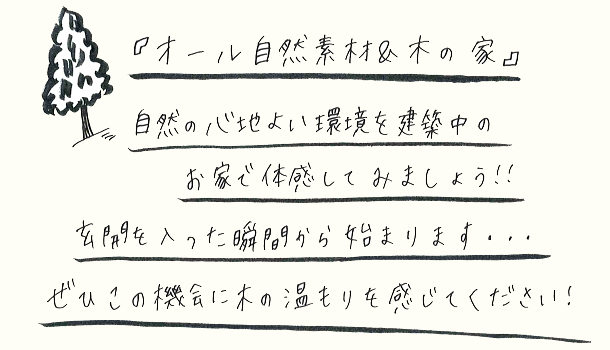 『オール自然素材&木の家』
自然の心地よい環境を建築中の
お家で体感してみましょう!!
玄関を入った瞬間から始まります・・・
ぜひこの機会に木の温もりを感じてください!